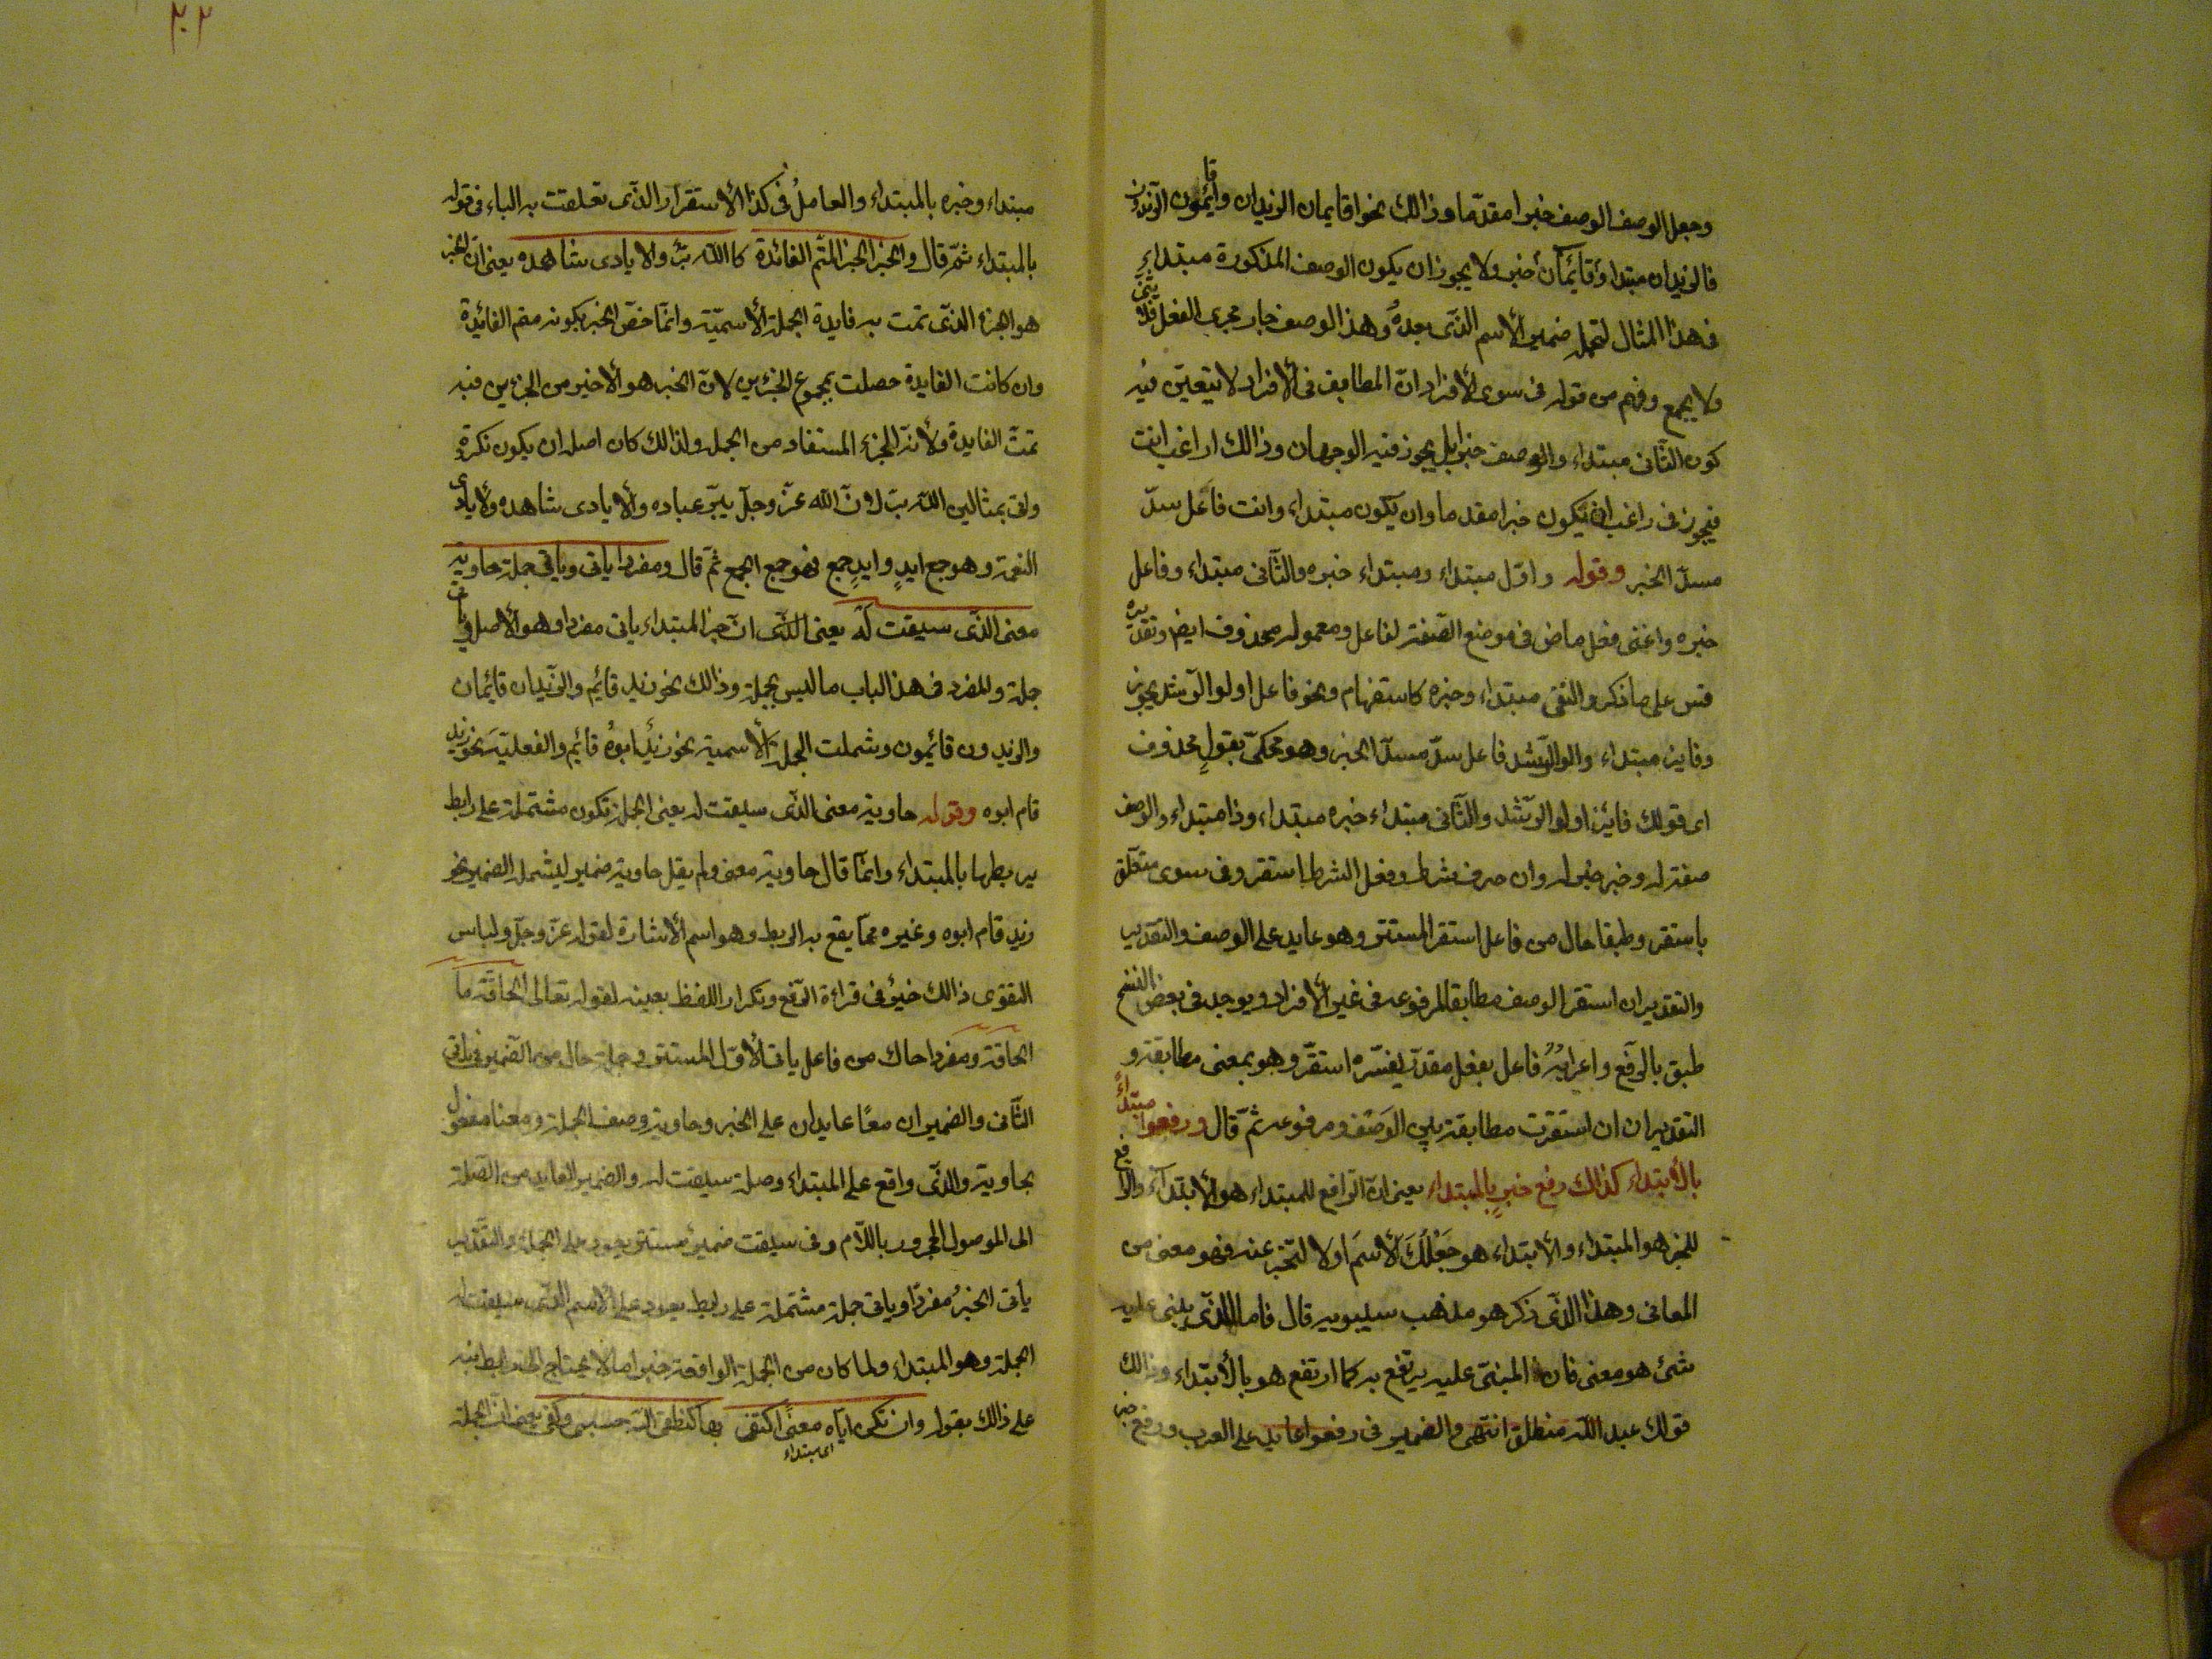 وجعل الوصف الوصف خبرا مقدّما وذالك نحو اقايمان الزيدان وأقائمون الزيدون
فالزيدان مبتدا وأقائمان خبر ولا يجوز ان يكون الوصف المذكورة مبتداء
فى هذا المثال لتحمله ضمير الأسم الذى بعدهُ وهذا الوصف جار مجرى الفعل فلا يثنى
ولا يجمع وفهم من قوله فى سوى الأفراد انّ المطابق فى الأفراد لا يتعيّن فيه
كون الثّانى مبتداء والوصف خبرا بل يجوز فيه الوجهان وذالك اراغب انت
فيجوز فى راغب ان يكون خبرا مقدما وان يكون مبتداء وانت فاعل سدّ
مسدّ الخبر وقوله واوّل مبتداء ومبتداء خبره والثّانى مبتداء وفاعل
خبره واغنى فعل ماض فى موضع الصّفة لفاعل ومعموله محذوف ايضا وتقديره
قس على ما ذكر والنفى مبتداء وخبره كاستفهام ونحو فاعل اولوا الرّشد يجوز
وفايز مبتداء والوا الرّشد فاعل سدّ مسدّ الخبر وهو محكىّ بقولٍ محذوف
اى قولك فائز اولوا الرّشد والثّانى مبتداء خبره مبتداء وذا مبتداء والوصف
صفة له وخبر خبر له وان حرف شرط وفعل الشرط استقر وفى سوى متعلّق
باستقر وطبقا حال من فاعل استقر المستتر وهو عايد على الوصف والتقدير
والتقدير ان استقر الوصف مطابقا لمرفوعه فى غير الأفراد ويوجد فى بعض النسخ
طبق بالرّفع واعرابهُ فاعل بفعل مقدّر يفسّره استقرّ وهو بمعنى مطابقة و
التقدير ان ان استقرّت مطابقة بين الوَصْف ومرفوعه ثمّ قال ورفعوا مبتداءً
بالأبتداء كذالك رفع خبرٍ بالمبتداء يعنى انّ الرّافع للمبتداء هو الأبتداء والرّافع
للخبر هو المبتداء والأبتداء هو جَعْلُكَ الأسمَ اولا لتخبر عنه فهو معنى من
المعانى وهذا الذّى ذكر هو مذهب سيبويه قال فاما الذّى يبنى عليه
شئ هو معنى فان المبنىّ عليه يرتفع به كما ارتفع هو بالأبتداء وذالك
قولك عبد اللّه منطلق انتهى والضمير فى رفعوا عايد على العرب ورفع خبر
٢٠٢
مبتداء وخبره بالمبتداء والعاملُ فى كذا الأستقرار الذّى تعلقت به الباء فى قوله
بالمبتداء ثمّ قال والخبر الجزا المتّم الفائدة كاالله برّ والايادى شاهده يعنى ان الخبر
هو الجزء الذّى تمت به فايدة الجملة الأسميّة وانّما خصّ الخبر بكونه متم الفائدة
وان كانت الفايدة حصلت بمجموع الجزئين لانّ الخبر هو الأخير من الجزئين فبه
تمتّ الفايدة ولأنّه الجزء المستفاد من الجمله ولذالك كان اصله ان يكون نكرة
واتى بمثالين اللّه برّ لانّ الله عزّ وجلّ يبرّ عباده والأيادى شاهده ولأيادى
النعمة وهو جمع ايدٍ وايدٍ جمع فهو جمع الجمع ثمّ قال ومفردا ياتى وياتى جملة حاوية
معنى الذّى سيقت لَهُ يعنى الذّى انّ خبر المبتداء ياتى مفردا وهو الأصل ويأتى
جملة والمفرد فى هذا الباب ما ليس بجملة وذالك نحو زيد قائم والزّيدان قائمان
والزيدون قائمون وشملت الجملة الأسمية نحو زيدٌ ابوهُ قائم والفعليّة نحو زيد
قام ابوه وقوله حاوية معنى الذّى سيقت له يعنى الجملة تكون مشتملة على رابط
يربطها بالمبتداء وانّما قال حاوية معنى ولم يقل حاوية ضمير ليشمل الضمير نحو
زيد قام ابوه وغيره ممّا يقع به الربط وهو اسم الأشارة لقوله عزّ وجلّ ولباس
التقوى ذالك خيرٌ فى قراءة الرّفع وتكرار اللفظ بعينه لقوله تعالى الحاقّة ما
الحاقة ومفردا حال من فاعل ياتى الأوّل المستتر وجملة حال من الضمير فى ياتى
الثّانى والضميران معًا عايدان على الخبر وحاوية وصف الجملة ومعنا مفعول
بحاوية والذّى واقع على المبتداء وصلة سيقت له والضمير العايد من الصّلة
الى الموصول المجرور باللّام وفى سيقت ضميرٌ مستتر يعود على الجملة والتقدير
يأتى الخبرُ مفردًا وياتى جملة مشتملة على رابط يعود على الأسم الذّى سيقت له
الجملة وهو المبتداء ولما كان من الجملة الواقعة خبرا ما لا يحتاج الى رابط نبه
على ذالك بقوله وان تكن ايّاه معنًى اكتفى بها كنطقى اللّه حسبى وكفى يعنى انّ الجملة
اى مبتداء